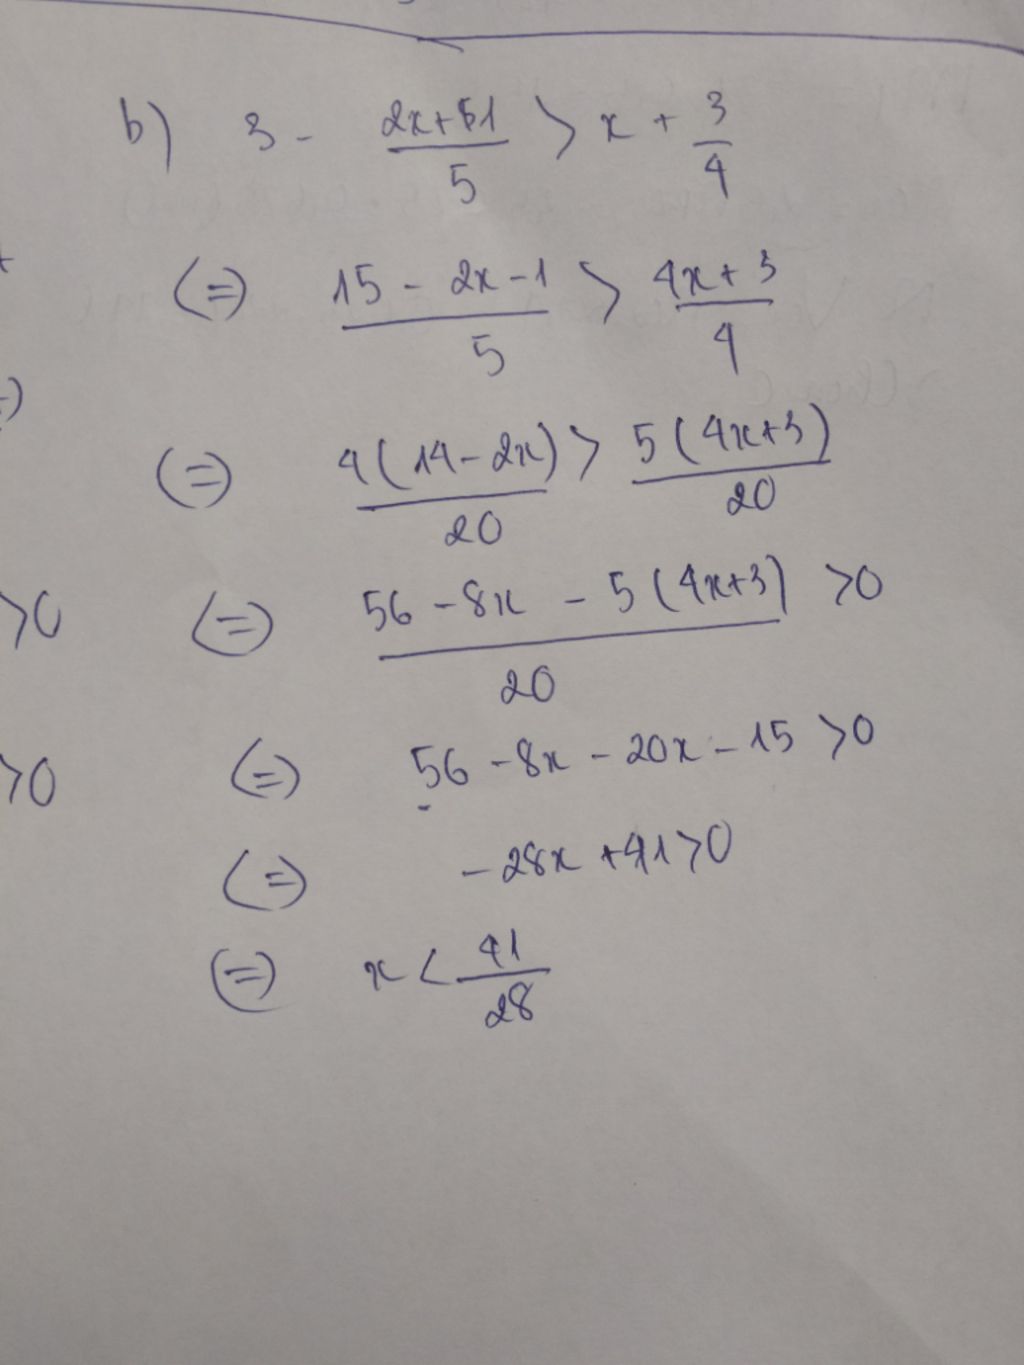 b) 3 - \frac{2x+1}{5} > x + \frac{3}{4}
(=) \frac{15 - 2x - 1}{5} > \frac{4x + 3}{4}
(=) \frac{4(14 - 2x)}{20} > \frac{5(4x+3)}{20}
>0 (=) \frac{56 - 8x - 5(4x+3)}{20} >0
>0 (=) 56 - 8x - 20x - 15 >0
(=) -28x + 41 >0
(=) x < \frac{41}{28}